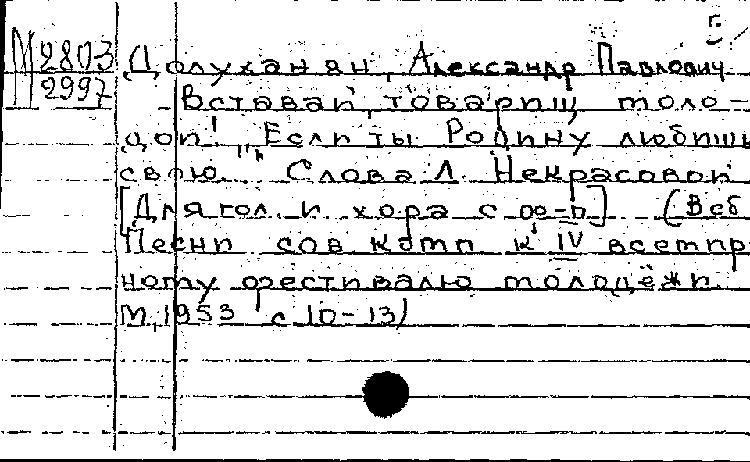 Г.
М 2803 Долуханян, Александр Павлович
2997 - Вставай, товарищ моло-
дой! „Если ты Родину любишь
свою..." Слова Л. Некрасовой
[Для гол. и хора с ф-п] (В сб.
Песни сов комп к IV всемир
ному фестивалю молодёжи.
М, 1953 с 10-13)